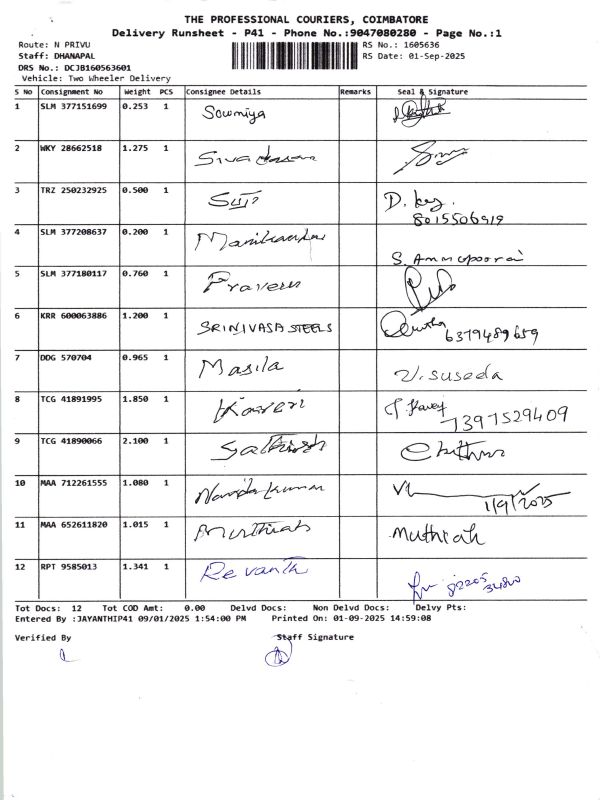 THE PROFESSIONAL COURIERS, COIMBATORE
Delivery Runsheet - P41 - Phone No.:9047080280 - Page No.:1
Route: N PRIVU RS No.: 1605636
Staff: DHANAPAL RS Date: 01-Sep-2025
DRS No.: DCJB160563601
Vehicle: Two Wheeler Delivery
S No Consignment No Weight PCS Consignee Details Remarks Seal & Signature
1 SLM 377151699 0.253 1 Sowmiya
2 WKY 28662518 1.275 1 Sivadasan
3 TRZ 250232925 0.500 1 Suji D. key.
8015506919
4 SLM 377208637 0.200 1 Manikandan S. Annapoorani
5 SLM 377180117 0.760 1 Praveen
6 KRR 600063886 1.200 1 SRINIVASA STEELS 6379489659
7 DDG 570704 0.965 1 Masila V. suseda
8 TCG 41891995 1.850 1 Kaveri 7397529409
9 TCG 41890066 2.100 1 Sathish
10 MAA 712261555 1.080 1 Navidkumar 1/9/2025
11 MAA 652611820 1.015 1 Muthiah Muthiah
12 RPT 9585013 1.341 1 Revanth
Tot Docs: 12 Tot COD Amt: 0.00 Delvd Docs: Non Delvd Docs: Delvy Pts:
Entered By :JAYANTHIP41 09/01/2025 1:54:00 PM Printed On: 01-09-2025 14:59:08
Verified By Staff Signature